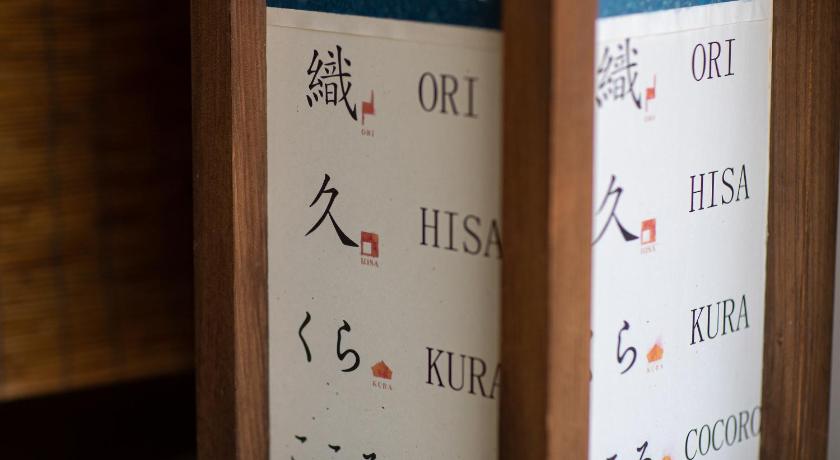 織 ORI ORI
久 HISA HISA
くら KURA KURA
こころ
織 ORI ORI
久 HISA HISA
ら KURA KURA
COCORO